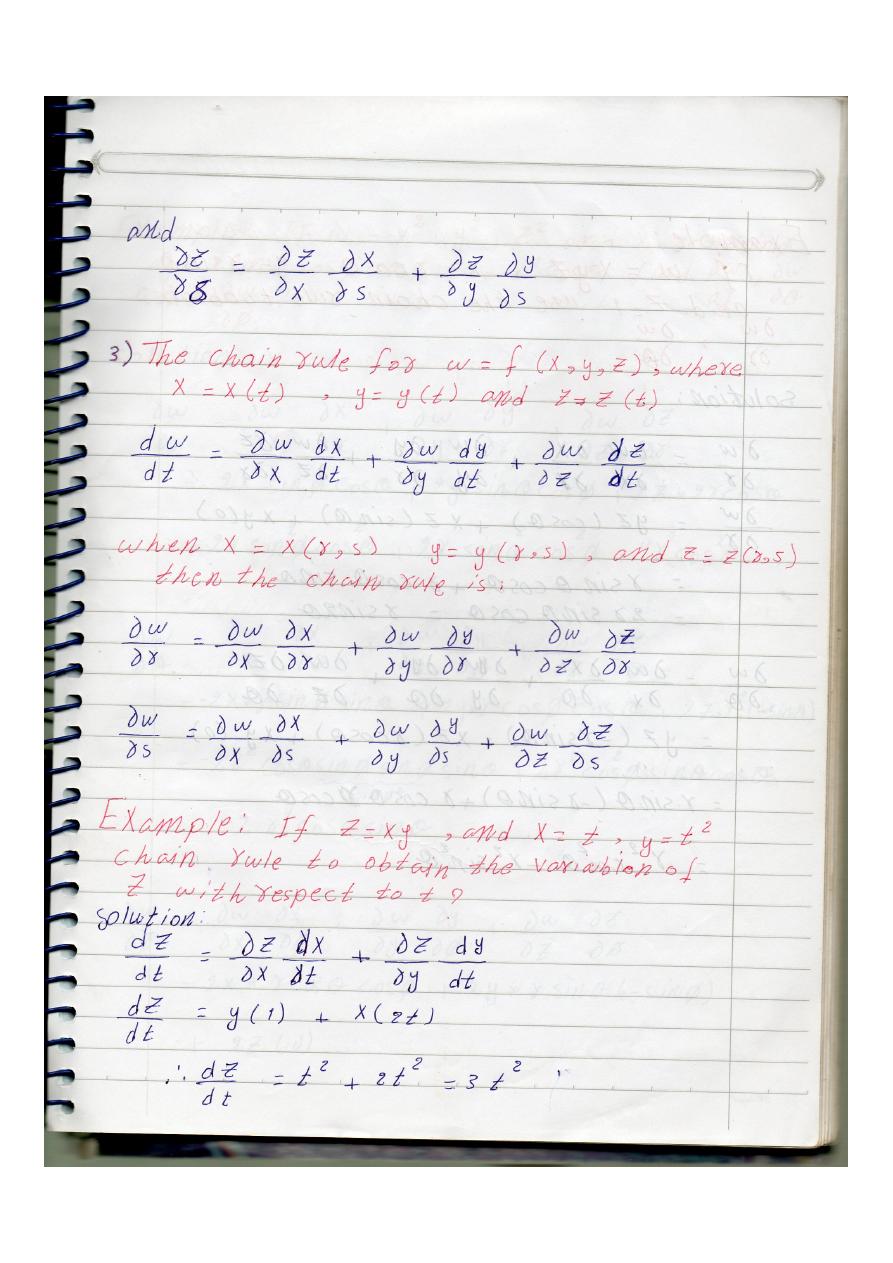 and
∂z/∂s = ∂z/∂x ∂x/∂s + ∂z/∂y ∂y/∂s
3) The chain rule for w = f (x,y,z), where
x = x(t) , y = y(t) and z = z(t)
dw/dt = ∂w/∂x dx/dt + ∂w/∂y dy/dt + ∂w/∂z dz/dt
when x = x(r,s) y = y(r,s), and z = z(r,s)
then the chain rule is:
∂w/∂r = ∂w/∂x ∂x/∂r + ∂w/∂y ∂y/∂r + ∂w/∂z ∂z/∂r
∂w/∂s = ∂w/∂x ∂x/∂s + ∂w/∂y ∂y/∂s + ∂w/∂z ∂z/∂s
Example: If z = xy , and x = t , y = t²
chain rule to obtain the variablon of
z with respect to t?
solution:
dz/dt = ∂z/∂x dx/dt + ∂z/∂y dy/dt
dz/dt = y(1) + x(2t)
∴ dz/dt = t² + 2t² = 3t²